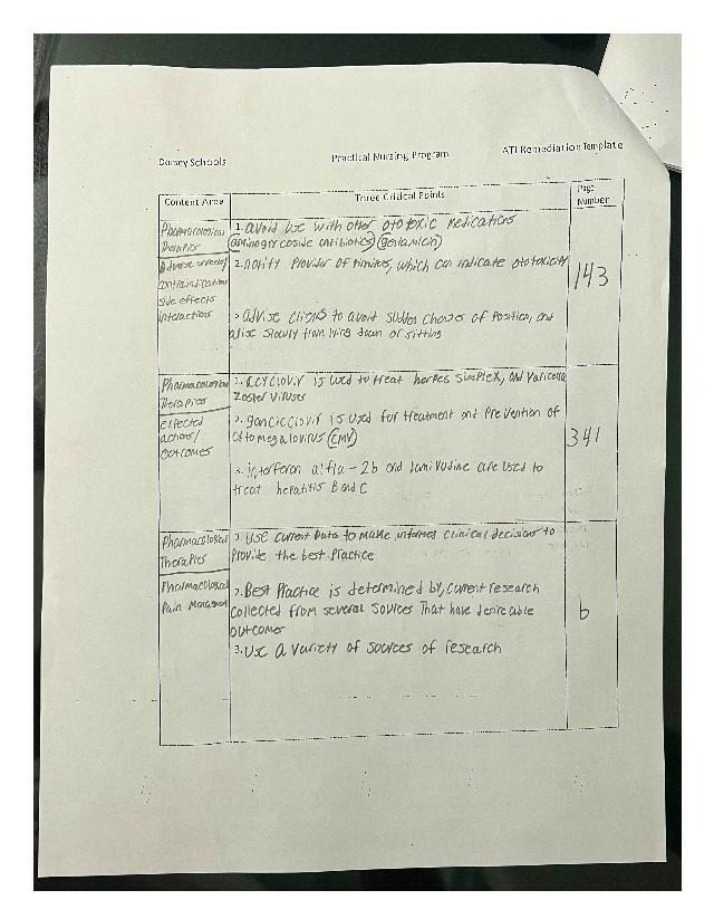 Dorsey Schools Practical Nursing Program ATI Remediation Template
Content Area Three Critical Points Page Number
Pharmacological Therapies
Adverse effects/ contraindications side effects interactions
1. avoid use with other ototoxic medications
(aminoglycoside antibiotics) (gentamicin)
2. notify Provider of tinnitus, which can indicate ototoxicity
3. advise clients to avoid sudden changes of Position, and
arise slowly from lying down or sitting
143
Pharmacological Therapies
expected actions/ outcomes
1. acyclovir is used to treat herpes simplex, and varicella
Zoster Viruses
2. ganciclovir is used for treatment and Prevention of
Cytomegalovirus (CMV)
3. interferon alfa-2b and lamivudine are used to
treat hepatitis B and C
341
Pharmacological Therapies
Pharmacological Pain
1. USE current Data to make informed clinical decisions to
Provide the best Practice
2. Best Practice is determined by, current research
collected from several sources That have desireable
outcomes
3. Use a variety of sources of research
6